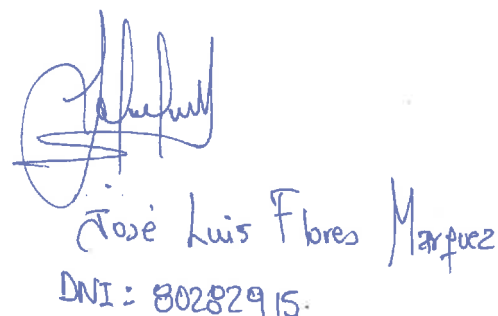 José Luis Flores Marquez
DNI: 80282915.